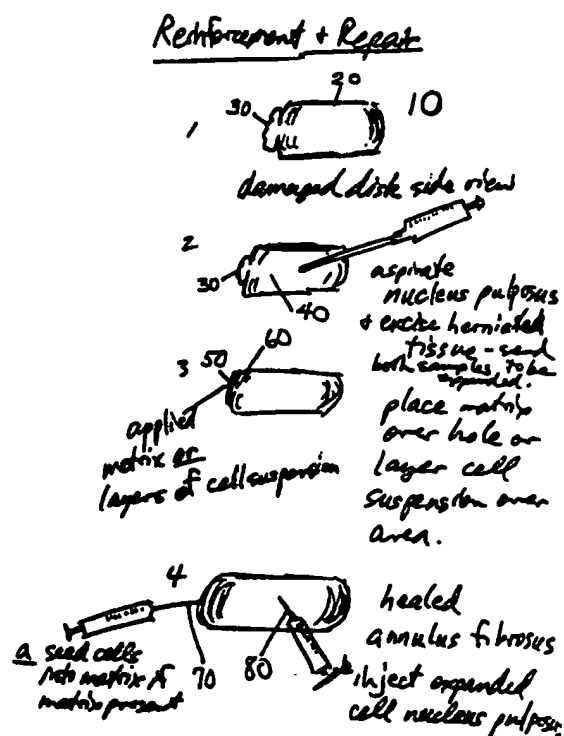 Reinforcement + Repair
20
30
10
1
damaged disk side view
2
30
40
aspirate
nucleus pulposus
+ excise herniated
tissue - send
both samples to be
expanded.
3
50
60
applied
matrix or
layers of cell suspension
place matrix
over hole or
layer cell
suspension over
area.
4
70
80
a seed cells
into matrix if
matrix present
healed
annulus fibrosus
inject expanded
cell nucleus pulposus